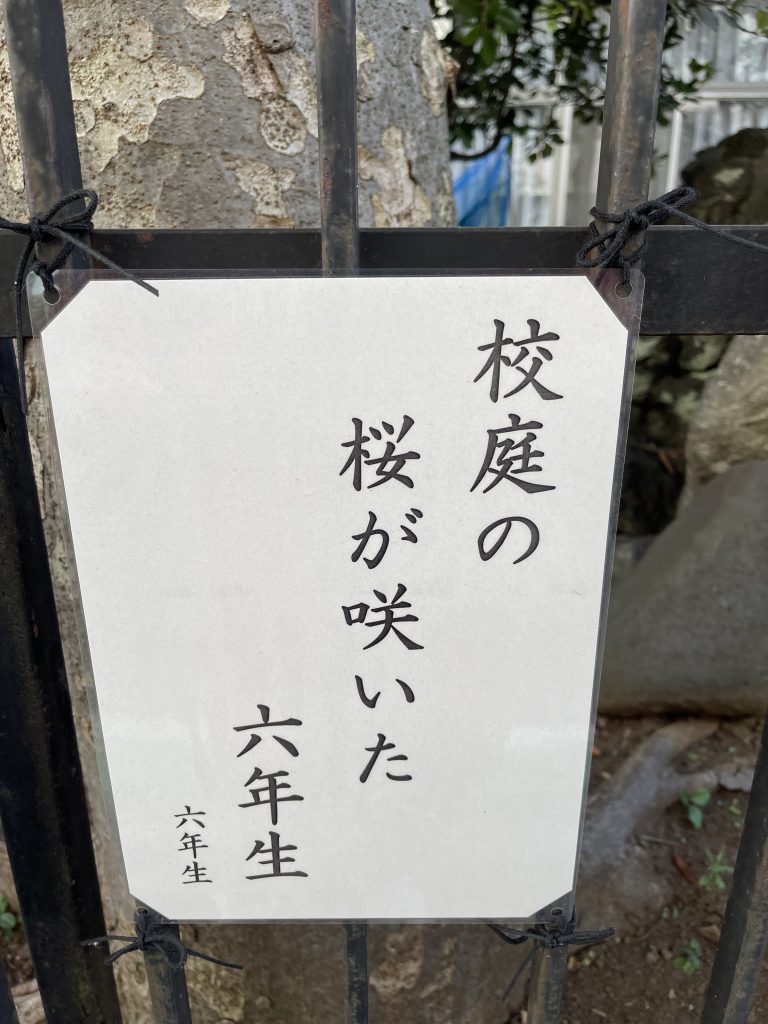 校庭の
桜が咲いた
六年生
六年生